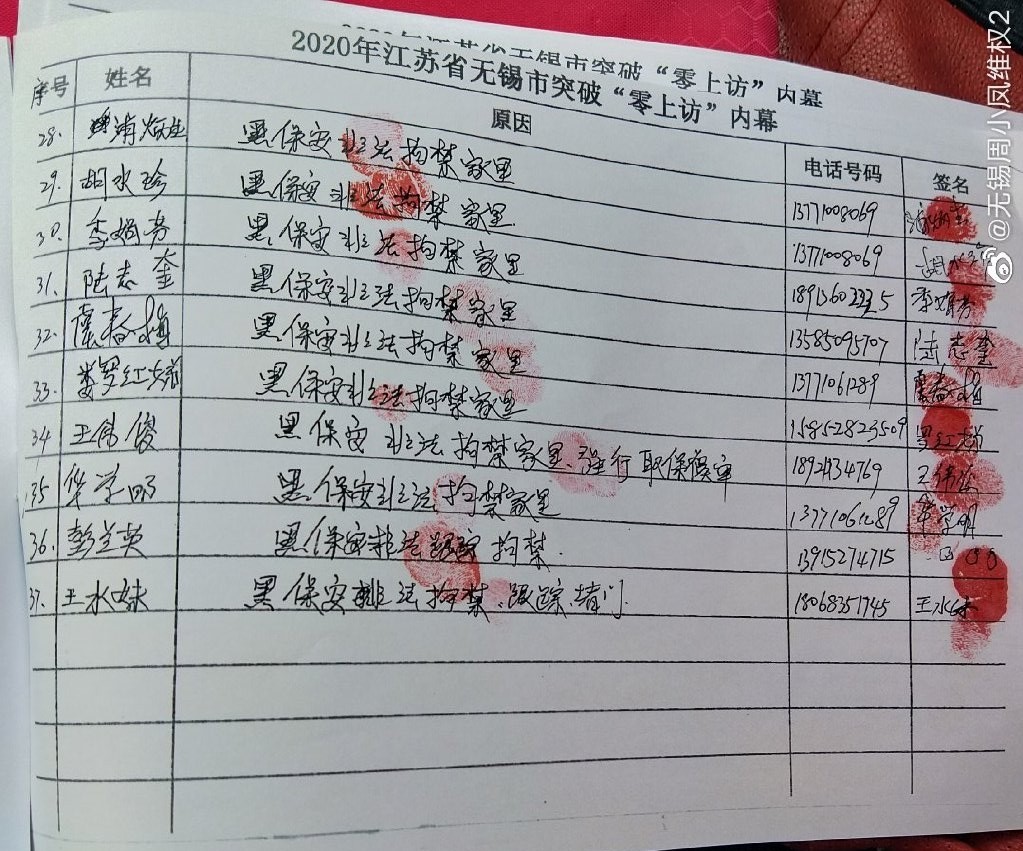 2020年江苏省无锡市突破“零上访”内幕
2020年江苏省无锡市突破“零上访”内幕
序号 姓名 原因 电话号码 签名
28. 黑保安非法拘禁家里 13771008069
29. 胡水珍 黑保安非法拘禁家里 13771008069 胡水珍
30. 季娟芬 黑保安非法拘禁家里 季娟芬
31. 陆志奎 黑保安非法拘禁家里 13585095707 陆志奎
32. 黑保安非法拘禁家里 13771061289
33. 罗红娣 黑保安非法拘禁家里 15852823509 罗红娣
34 王伟俊 黑保安非法拘禁家里、强行 王伟俊
35 华学明 黑保安非法拘禁家里 13771061289 华学明
36. 彭兰英 黑保安非法跟踪拘禁. 13915274715
37. 王水妹 黑保安非法拘禁、跟踪、 18068351745 王水妹
@无锡周小凤维权2